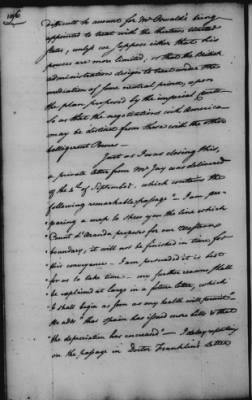 difficult to account for Mr Oswald's being
appointed to treat with the thirteen United
States, unless we suppose either that his
powers are more limited, or that the British
administration design to treat under the
mediation of some neutral power, upon
the plan proposed by the imperial courts
so as that the negotiations with America
may be distinct from those with the other
belligerent Powers —
Just as I was closing this,
a private letter from Mr Jay was delivered
of the 4th of September, which contains the
following remarkable passage — "I am pre-
paring a map to shew you the line which
Count d'Aranda proposes for our Western
boundary, it will not be finished in time for
this conveyance — I am persuaded it is best
for us to take time — my further reasons shall
be explained at large in a future letter, which
I shall begin as soon as my health will permit" —
He adds "that Spain has issued more bills & that
the depreciation has encreased" — I delay reporting
on the passage in Doctor Franklin's Letter